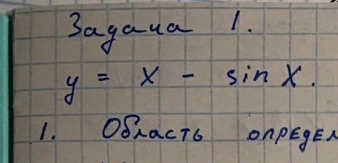 Задача 1.
y = x - sin x.
1. Область определ